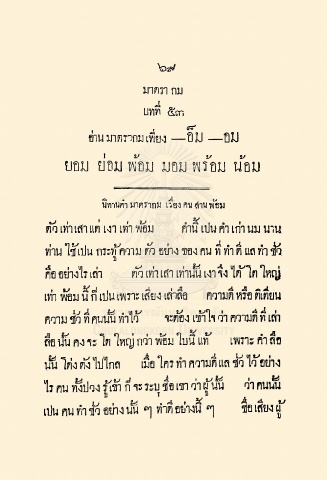 ๖๙
มาตรา กม
บทที่ ๕๓
อ่าน มาตรากม เพียง —อ็ม —อม
ยอม ย่อม พ้อม มอม พร้อม น้อม
นิทานคำ มาตรากม เรื่อง คน สาน พ้อม
ตัว เท่า เสา แต่ เงา เท่า พ้อม คำนี้ เปน คำ เก่า นม นาน
ท่าน ใช้ เปน กระทู้ ความ ตัว อย่าง ของ คน ที่ ทำ ดี แล ทำ ชั่ว
คือ อย่าง ไร เล่า ตัว เท่า เสา เท่านั้น เงา จึง ได้ โต ใหญ่
เท่า พ้อม นี้ ก็ เปน เพราะ เสียง เล่า ลือ ความดี หรือ ติเตียน
ความ ชั่ว ที่ คนนั้น ทำไว้ จะต้อง เข้าใจ ว่า ความ ดี ที่ เล่า
ลือ นั้น คง จะ โต ใหญ่ กว่า พ้อม ใบนี้ แท้ เพราะ คำ ลือ
นั้น โด่ง ดัง ไป ไกล เมื่อ ใคร ทำ ความดี แล ชั่ว ไว้ อย่าง
ไร คน ทั้งปวง รู้เข้า ก็ จะ ระบุ ชื่อ เขา ว่า ผู้ นั้น ว่า คนนั้น
เปน คน ทำ ชั่ว อย่าง นั้น ๆ ทำดี อย่างนี้ ๆ ชื่อ เสียง ผู้